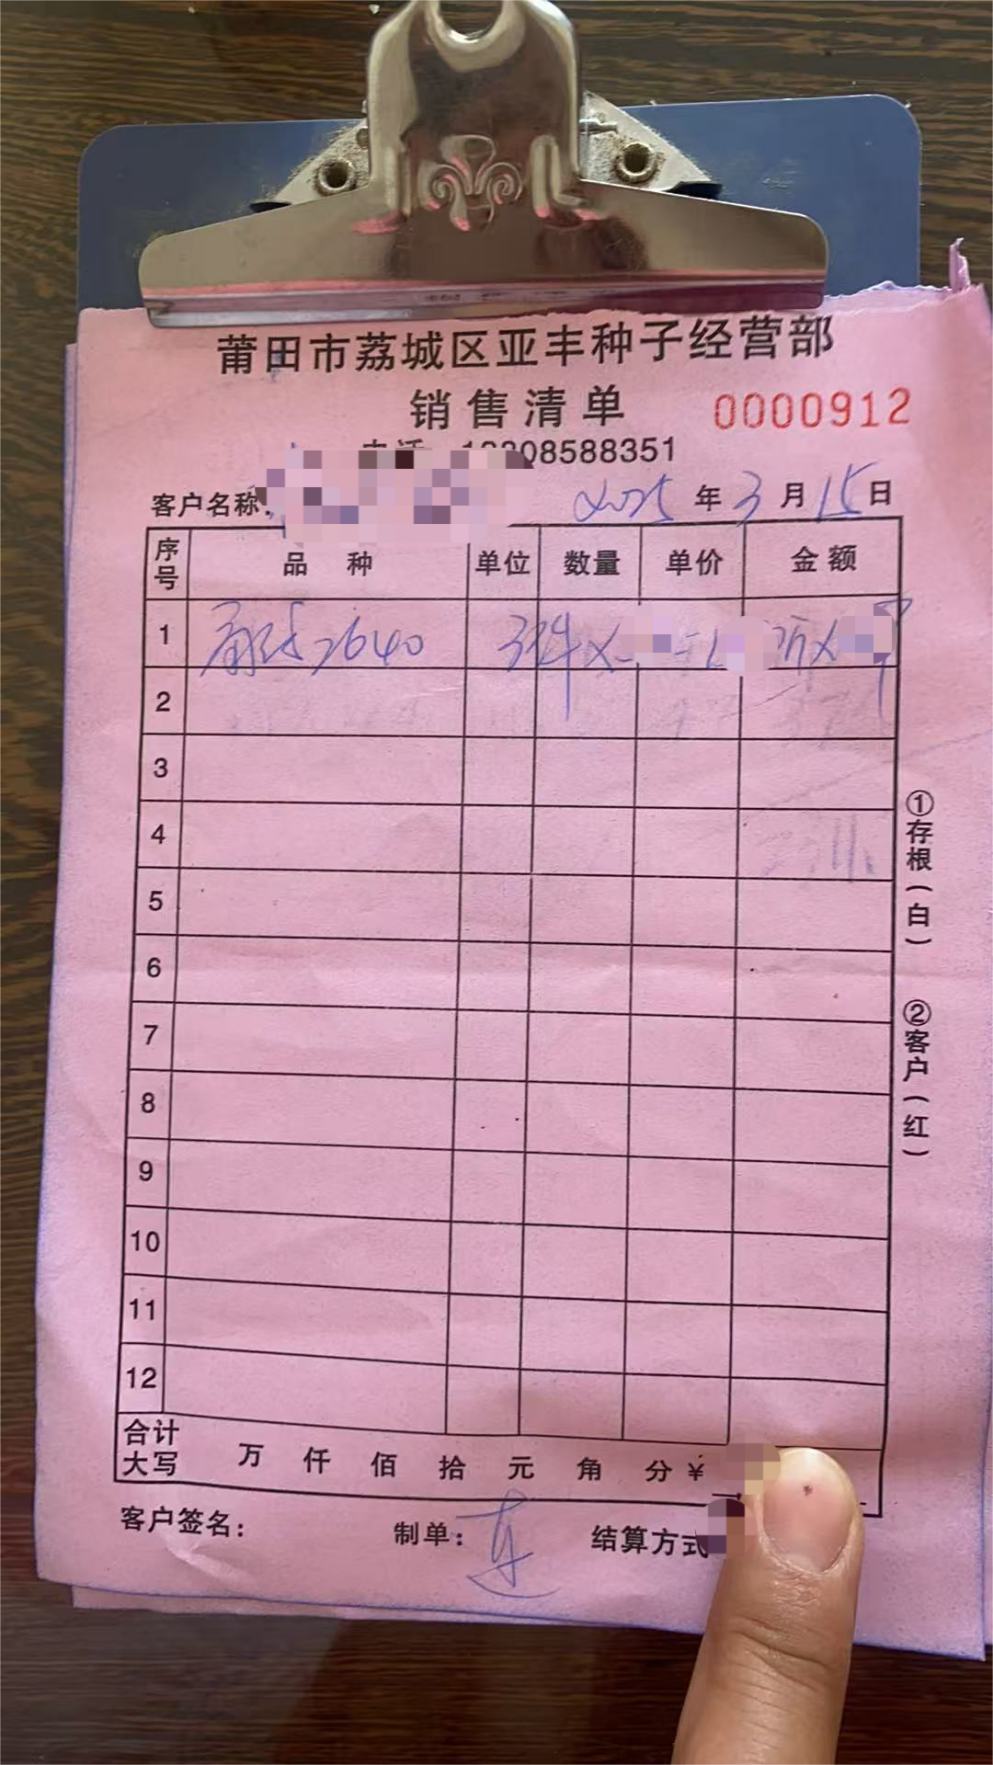 莆田市荔城区亚丰种子经营部
销售清单 0000912
电话 13808588351
客户名称: 2025年3月15日
序号 品种 单位 数量 单价 金额
1 2640 3件×
2
3
4
5
6
7
8
9
10
11
12
合计大写 万 仟 佰 拾 元 角 分 ¥
客户签名: 制单: 连 结算方式
①存根(白) ②客户(红)